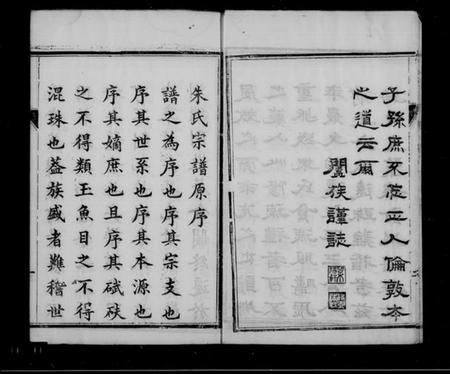 子孫庶不忘立人倫敦本
之道云爾
闔族謹誌
朱氏宗譜原序
譜之為序也序其宗支也
序其世系也序其本源也
序其嫡庶也且序其碔砆
之不得類玉魚目之不得
混珠也葢族盛者難稽世